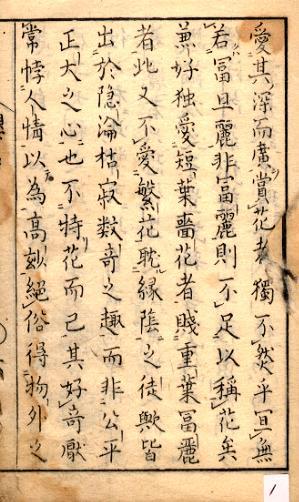 愛其深而廣賞花者獨不然乎冝無
若冨且麗非冨麗則不足以稱花矣
兼好独愛短葉嗇花者賤重葉冨麗
者此又不愛繁花耽緑陰之徒歟皆
出於隐淪枯寂数竒之趣而非公平
正大之心也不特花而已其好竒厭
常悖人情以為高絶俗得物外之
1